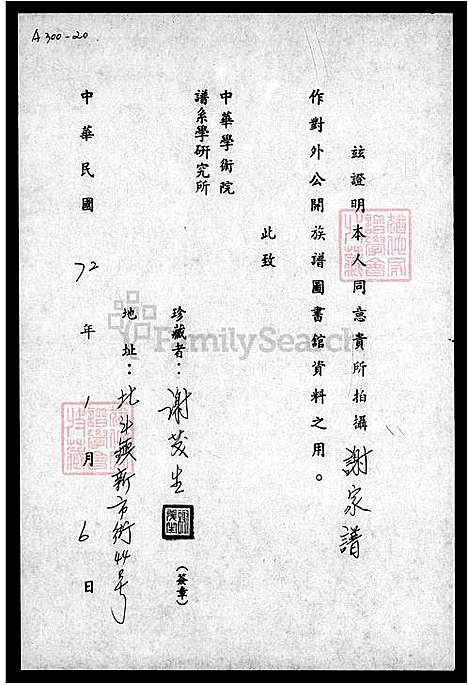 A300-20
玆證明本人同意貴所拍攝謝家譜
作對外公開族譜圖書館資料之用。
此致
中華學術院
譜系學研究所
珍藏者：謝茂生
(簽章)
地址：北斗鎮新市街44号
中華民國72年1月6日
FamilySearch